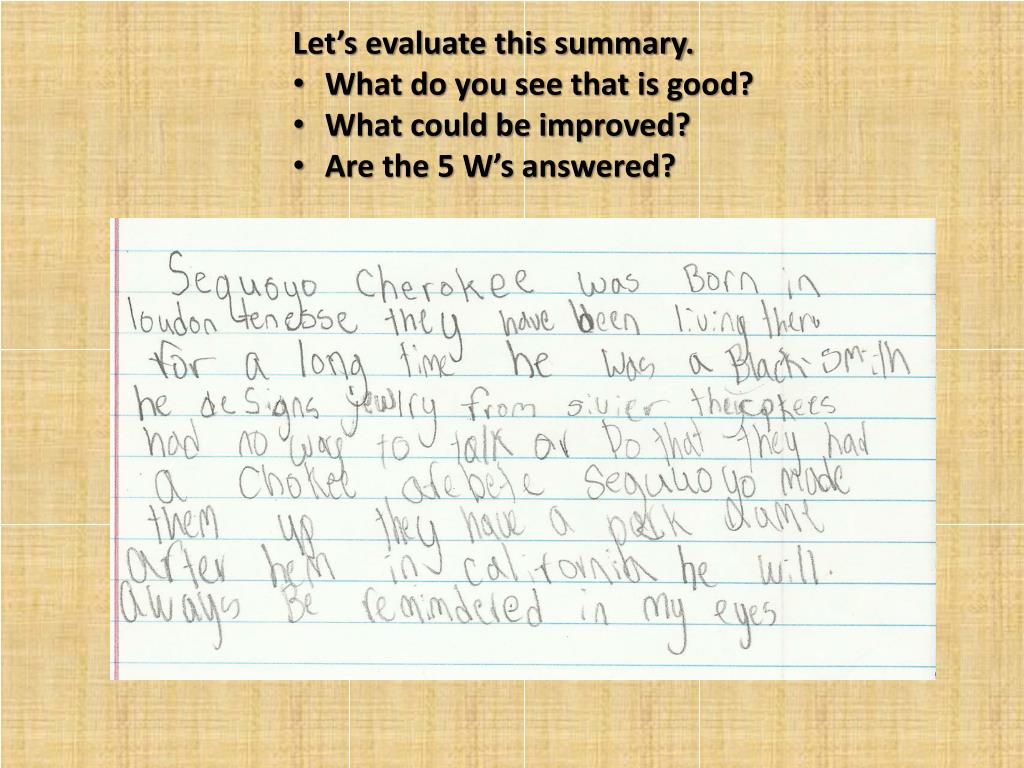 Let’s evaluate this summary.
• What do you see that is good?
• What could be improved?
• Are the 5 W’s answered?
Sequoyo Cherokee was Born in
loudon tenesse they have been living there
for a long time he was a Black smith
he designs jewlry from silvier
had no way to talk or Do that they had
a Chokee Sequoyo made
them up they have a park
after hem in california he will.
always Be remimdered in my eyes